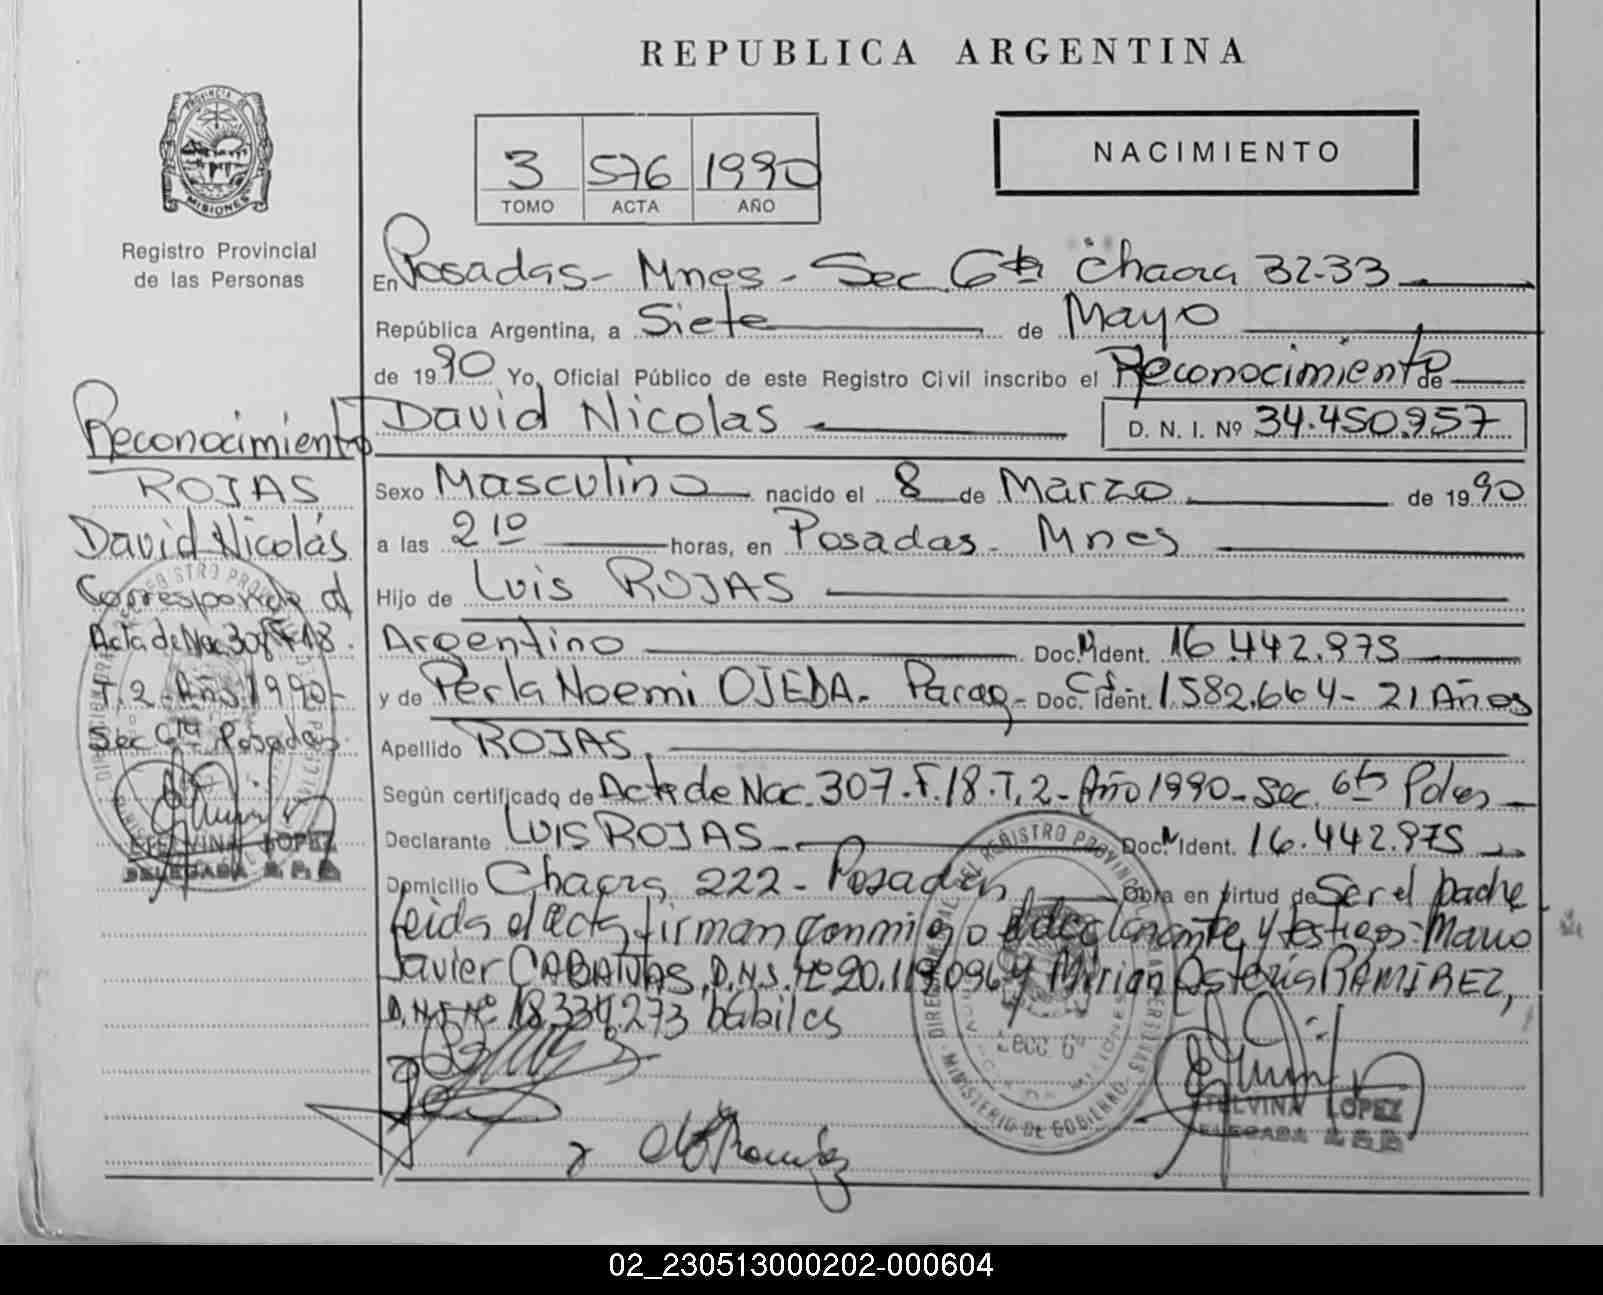 REPUBLICA ARGENTINA
PROVINCIA DE
MISIONES
Registro Provincial
de las Personas
3 576 1990
TOMO ACTA AÑO
NACIMIENTO
En Posadas - Mnes - Sec 6ta Chacra 32-33
República Argentina, a Siete de Mayo
de 1990 Yo, Oficial Público de este Registro Civil inscribo el Reconocimiento de
David Nicolas D. N. I. Nº 34.450.957
Sexo Masculino nacido el 8 de Marzo de 1990
a las 2 10 horas, en Posadas - Mnes
Hijo de Luis ROJAS
Argentino Doc. N Ident. 16.442.975
y de Perla Noemi OJEDA - Parag - Doc. C.I. Ident. 1582.664 - 21 Años
Apellido ROJAS
Según certificado de Acta de Nac. 307 - F. 18 - T. 2 - Año 1990 - Sec. 6ta Pdas
Declarante LUIS ROJAS Doc. N Ident. 16.442.975
Domicilio Chacra 222 - Posadas Obra en virtud de Ser el padre
leida el acta, firman conmigo el declarante y testigos: Mario
Javier CABAÑAS, D.N.I. Nº 20.119.096 y Mirian Asteria RAMIREZ,
D.N.I. Nº 18.334.273 habiles
ETELVINA LOPEZ
DELEGADA
Reconocimiento
ROJAS
David Nicolás
Corresponde al
Acta de Nac. 307 F 18.
T. 2 - Año 1990 -
Sec 6ta Posadas
ETELVINA LOPEZ
DELEGADA
02_230513000202-000604